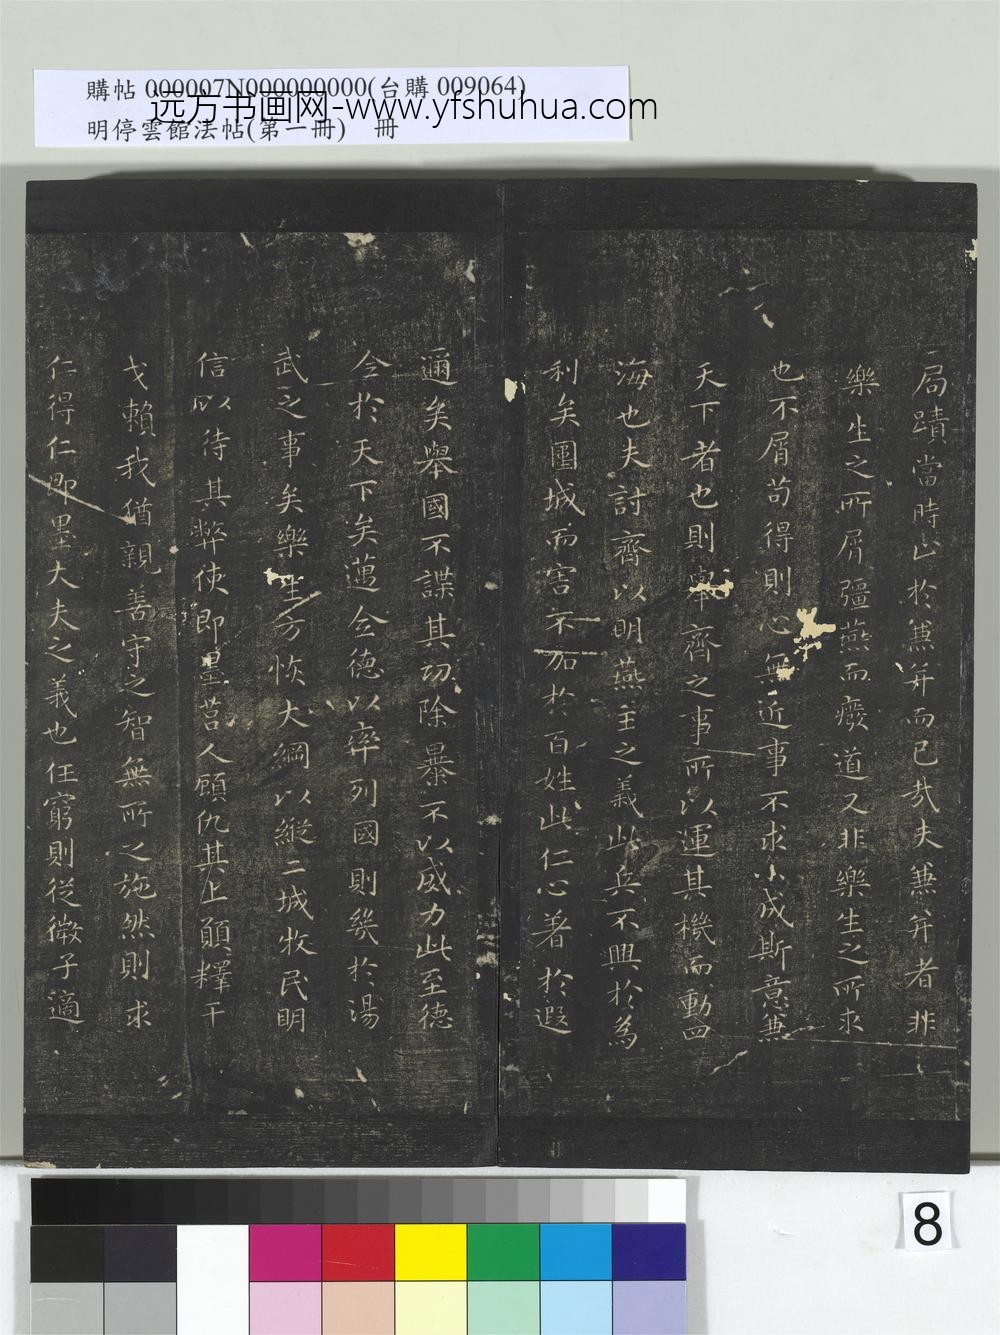 購帖 000007N000000000(台購 009064)
远方书画网-www.yfshuhua.com
明停雲館法帖(第一冊) 冊
局蹟當時止於兼并而已㢤夫兼并者非
樂生之所屑彊燕而癈道又非樂生之所求
也不屑苟得則心無近事不求小成斯意兼
天下者也則舉齊之事所以運其機而動四
海也夫討齊以明燕主之義此兵不興於為
利矣圍城而害不加於百姓此仁心著於遐
邇矣舉國不謀其功除暴不以威力此至德
令於天下矣邁全德以率列國則幾於湯
武之事矣樂生方恢大綱以縱二城牧民明
信以待其弊使即墨莒人顧仇其上願釋干
戈賴我猶親善守之智無所之施然則求
仁得仁即墨大夫之義也任窮則從微子適
8